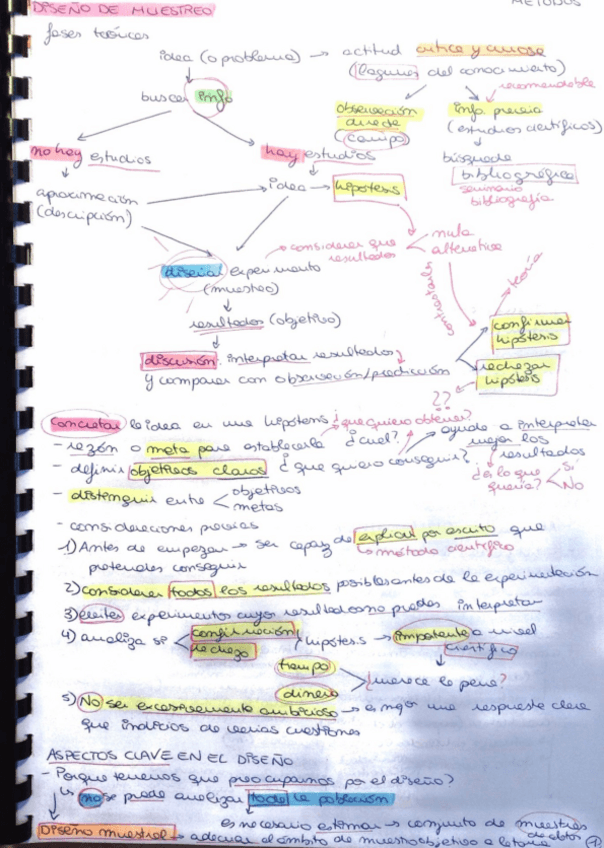 DISEÑO DE MUESTREO
METODOS
fases teóricas
idea (o problema) → actitud critica y curiosa
(lagunas del conocimiento)
buscar info
recomendable
observación directa (campo)
info. previa (estudios científicos)
no hay estudios
hay estudios
búsqueda bibliográfica
seminario bibliografía
aproximación (descripción)
idea → hipótesis
nula
alternativa
considerar que resultados
contrastarlas
teoría
diseñar experimento
(muestreo)
resultados (objetivo)
confirmar hipótesis
discusión: interpretar resultados
y comparar con observación/predicción
rechazar hipótesis
??
Concretar la idea en una hipótesis ¿que quiero obtener?
- razón o meta para establecerla ¿cual?
ayuda a interpretar mejor los resultados
- definir objetivos claros ¿que quiero conseguir?
¿es lo que quería? < Si No
- distinguir entre < objetivos metas
- consideraciones previas
1) Antes de empezar → ser capaz de explicar por escrito que
pretendes conseguir
↳ método científico
2) considerar todos los resultados posibles antes de la experimentación
3) evites experimentos cuyos resultados no puedas interpretar
4) analiza si < confirmación rechazo / hipótesis → importante a nivel
científico
tiempo
dinero > ¿merece la pena?
5) No ser excesivamente ambicioso → es mejor una respuesta clara
que indicios de varias cuestiones
ASPECTOS CLAVE EN EL DISEÑO
- Porque tenemos que preocuparnos por el diseño?
↳ no se puede analizar toda la población
es necesario estimar → conjunto de muestras de datos
Diseño muestral → adecuar el ámbito de muestreo objetivo a la toma
1